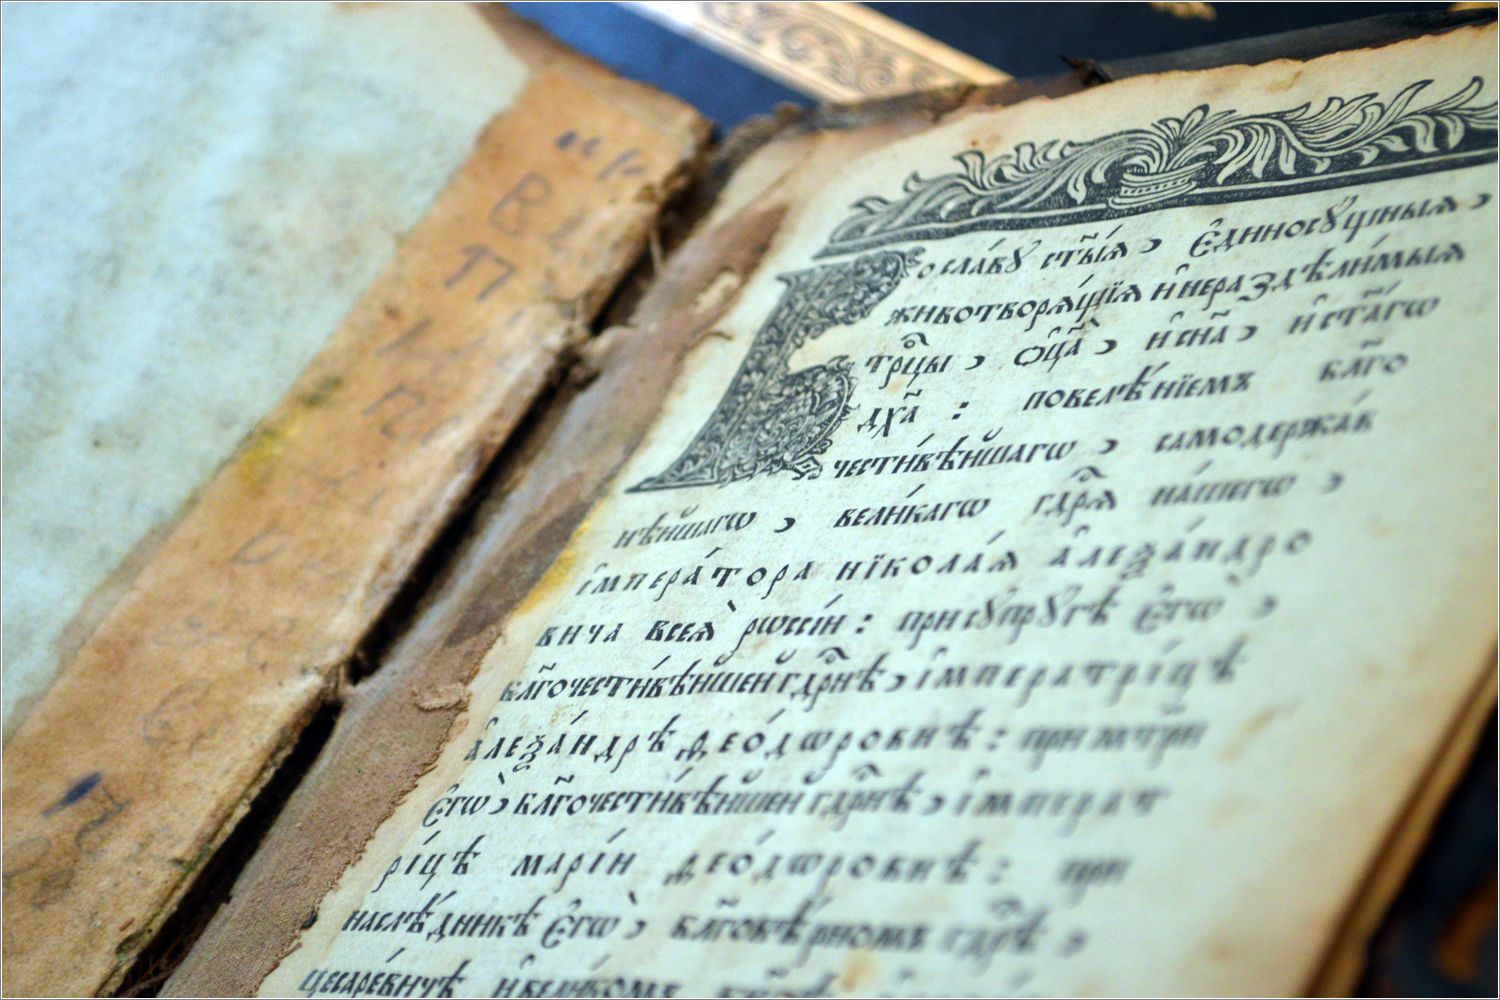 Во сла́вꙋ ст҃ы́ѧ, є҆диносꙋ́щныѧ,
животворѧ́щїѧ и҆ нераздѣли́мыѧ
трⷪ҇цы, ѻ҆ц҃а̀, и҆ сн҃а, и҆ ст҃а́гѡ
дх҃а : повелѣ́нїемъ бл҃го
чести́вѣйшагѡ, самодержа́в
нѣ́йшагѡ, вели́кагѡ гдⷭ҇рѧ на́шегѡ,
і҆мпера́тора нїкола́ѧ а҆леѯа́ндро
вича всеѧ̀ рѡссі́и : при сꙋпрꙋ́гѣ є҆гѡ̀,
бл҃гочести́вѣйшей гдⷭ҇рнѣ, і҆мператрі́цѣ
а҆леѯа́ндрѣ ѳео́дѡровнѣ : при мт҃ри
є҆гѡ̀, бл҃гочести́вѣйшей гдⷭ҇рнѣ, і҆мперат
рі́цѣ марі́и ѳео́дѡровнѣ : при
наслѣ́дникѣ є҆гѡ̀, бл҃говѣ́рномъ гдⷭ҇рѣ,
цесаре́вичѣ и҆ вели́комъ